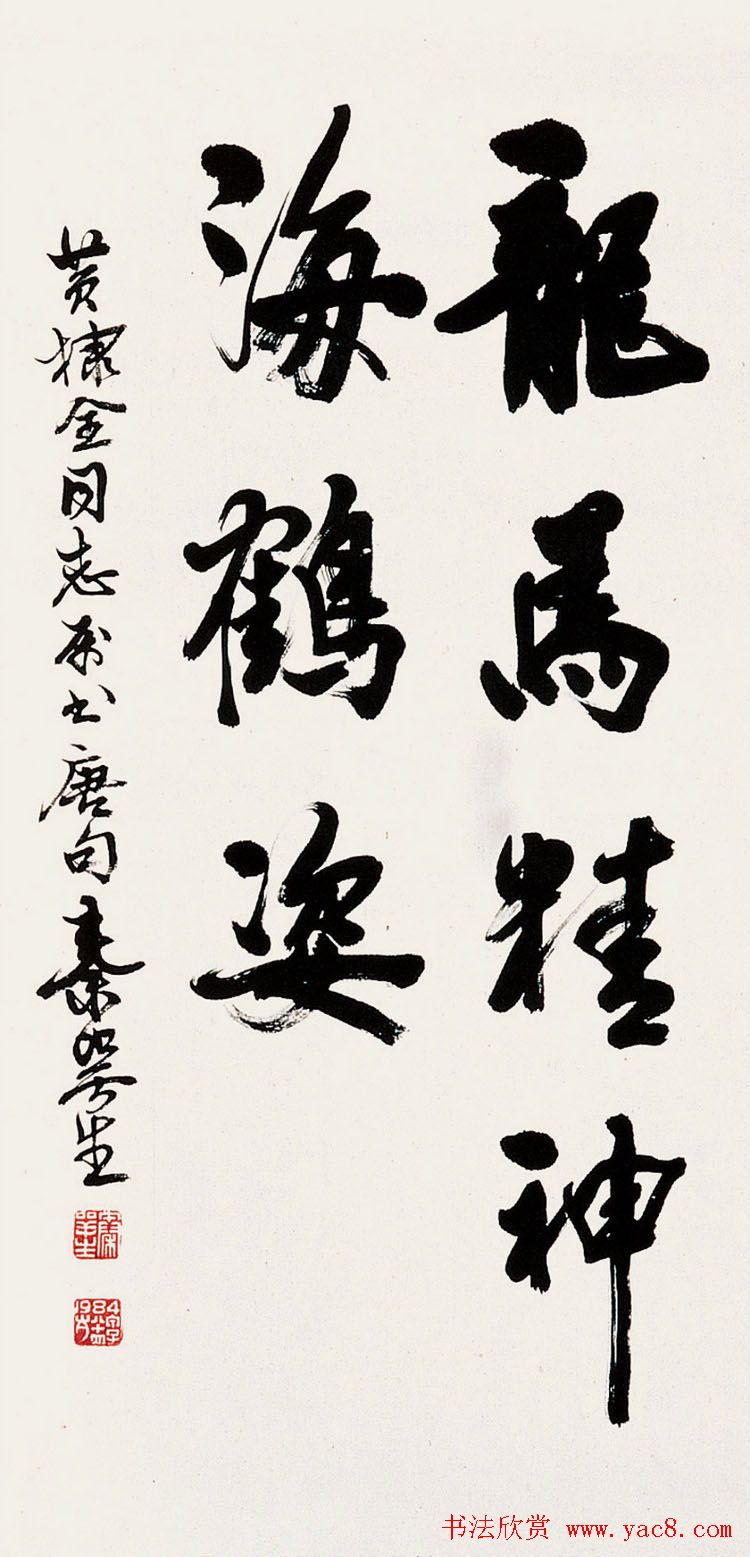 龍馬精神
海鶴姿
黄棣金同志属书唐句秦咢生
书法欣赏 www.yac8.com